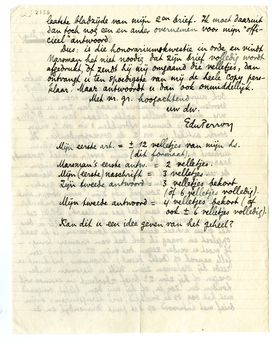 laatste bladzijde van mijn 2en brief. Ik moet daaruit
dan toch nog een en ander overnemen voor mijn "offi-
cieel" antwoord.
Dus: is die honorariumkwestie in orde en vindt
Marsman het niet noodig dat zijn brief volledig wordt
afgedrukt, of zendt hij mij omgaand die velletjes, dan
ontvangt u ten spoedigste van mij de heele copy pers-
klaar. Maar antwoordt u dan ook onmiddellijk.
Met m. gr. hoogachtend
uw dw.
EduPerron
Mijn eerste art. = ± 12 velletjes van mijn hs.
(dit formaat).
Marsman's eerste antw. = 2 velletjes.
Mijn (eerste) naschrift = 3 velletjes
Zijn tweede antwoord = 3 velletjes bekort
(of 6 velletjes volledig).
Mijn tweede antwoord = 4 velletjes bekort (of
ook ± 6 velletjes volledig).
Kan dit u een idee geven van het geheel?